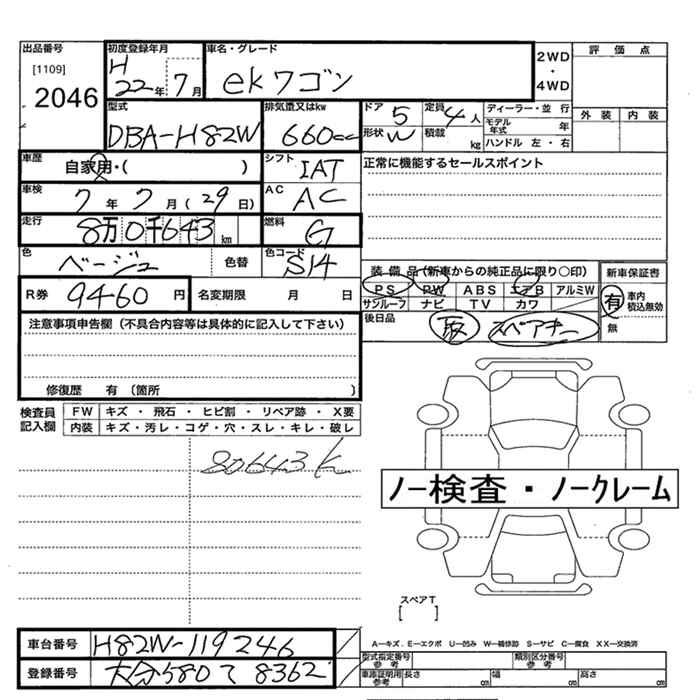 出品番号
[1109]
2046
初度登録年月
H
22年 7月
車名・グレード
ekワゴン
2WD
・
4WD
評価点
外装 内装
型式
DBA-H82W
排気量又はkw
660cc
ドア 5
定員 4人
形状 W
積載 kg
ディーラー・並行
モデル年式 年
ハンドル 左・右
車歴
自家用・( )
シフト
IAT
正常に機能するセールスポイント
車検
7年 7月 (29日)
AC
AC
走行
8万0千643km
燃料
G
色
ベージュ
色替
色コード
S14
装備品(新車からの純正品に限り○印)
PS PW ABS エアB アルミW
サンルーフ ナビ TV カワ
新車保証書
有 車内積込無効
無
R券 9460円
名変期限 月 日
後日品
取 スペアキー
注意事項申告欄(不具合内容等は具体的に記入して下さい)
修復歴 有 (箇所 )
検査員記入欄
FW キズ・飛石・ヒビ割・リペア跡・X要
内装 キズ・汚レ・コゲ・穴・スレ・キレ・破レ
80643K
ノー検査・ノークレーム
スペアT
[ ]
車台番号 H82W-119246
登録番号 大分580て8362
A—キズ. E—エクボ U—凹み W—補修跡 S—サビ C—腐食 XX—交換済
型式指定番号 参考
類別区分番号 参考
車庫証明用 参考
長さ cm 幅 cm 高さ cm